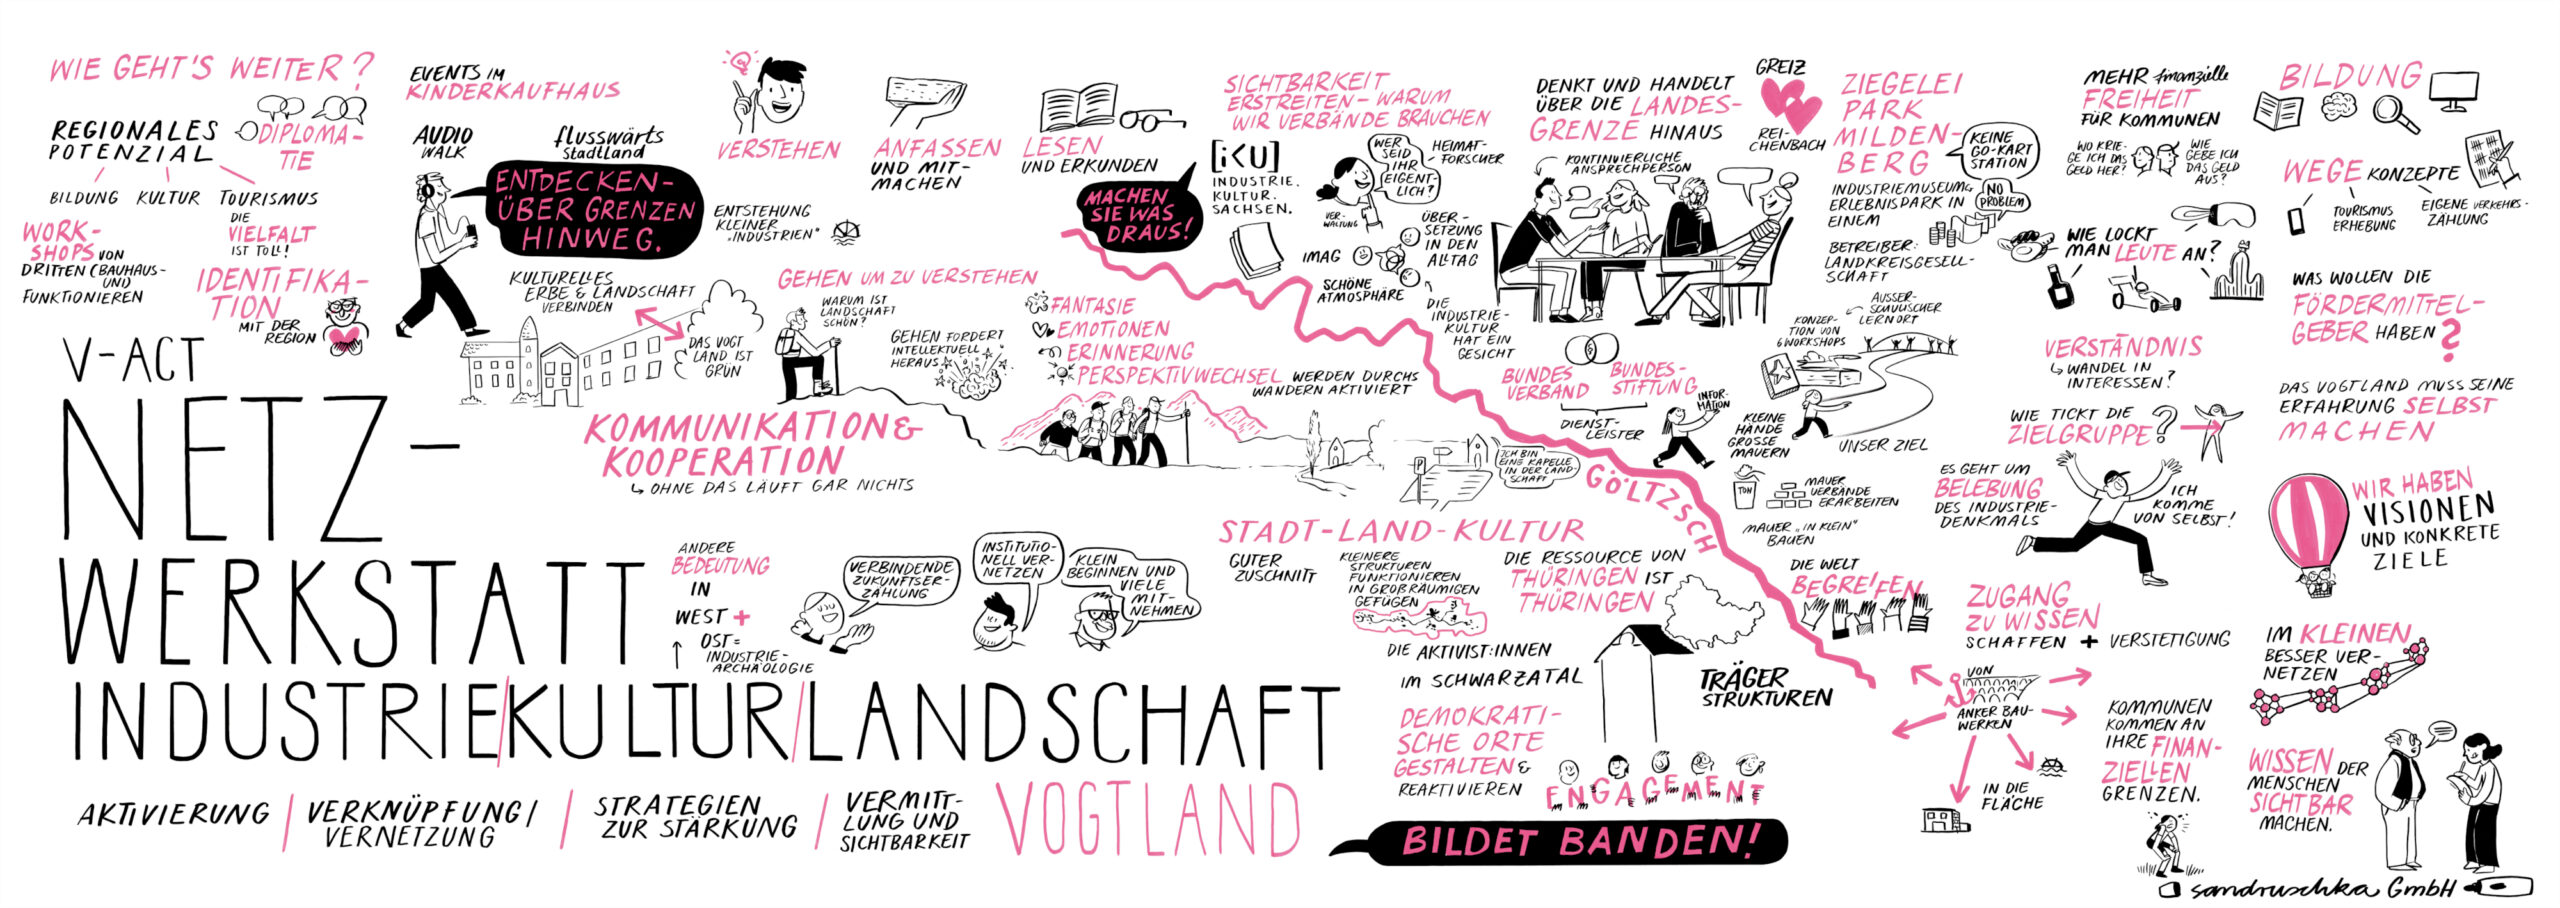 WIE GEHT'S WEITER?
REGIONALES
POTENZIAL
DIPLOMA-
TIE
BILDUNG
KULTUR
TOURISMUS
WORK-
SHOPS VON
DRITTEN (BAUHAUS-
UND
FUNKTIONIEREN
DIE
VIELFALT
IST TOLL!
IDENTIFIKA-
TION
MIT DER
REGION
V-ACT
NETZ-
WERKSTATT
INDUSTRIE/KULTUR/LANDSCHAFT
VOGTLAND
AKTIVIERUNG /
VERKNÜPFUNG/
VERNETZUNG /
STRATEGIEN
ZUR STÄRKUNG /
VERMITT-
LUNG UND
SICHTBARKEIT
EVENTS IM
KINDERKAUFHAUS
AUDIO
WALK
flusswärts
Stadtland
ENTDECKEN-
ÜBER GRENZEN
HINWEG.
KULTURELLES
ERBE & LANDSCHAFT
VERBINDEN
DAS VOGT
LAND IST
GRÜN
KOMMUNIKATION &
KOOPERATION
OHNE DAS LÄUFT GAR NICHTS
VERSTEHEN
ANFASSEN
UND MIT-
MACHEN
LESEN
UND ERKUNDEN
ENTSTEHUNG
KLEINER
„INDUSTRIEN"
GEHEN UM ZU VERSTEHEN
WARUM IST
LANDSCHAFT
SCHÖN?
GEHEN FORDERT
INTELLEKTUELL
HERAUS
FANTASIE
EMOTIONEN
ERINNERUNG
PERSPEKTIVWECHSEL WERDEN DURCHS
WANDERN AKTIVIERT
ANDERE
BEDEUTUNG
IN
WEST +
OST =
INDUSTRIE-
ARCHÄOLOGIE
VERBINDENDE
ZUKUNFTSER-
ZÄHLUNG
INSTITUTIO-
NELL VER-
NETZEN
KLEIN
BEGINNEN UND
VIELE
MIT-
NEHMEN
MACHEN
SIE WAS
DRAUS!
SICHTBARKEIT
ERSTREITEN - WARUM
WIR VERBÄNDE BRAUCHEN
[iKU]
INDUSTRIE.
KULTUR.
SACHSEN.
WER
SEID
IHR
EIGENT-
LICH?
HEIMAT-
FORSCHER
VER-
WALTUNG
IMAG
SCHÖNE
ATMOSPHÄRE
ÜBER-
SETZUNG
IN DEN
ALLTAG
DIE
INDUSTRIE-
KULTUR
HAT EIN
GESICHT
ICH BIN
EINE KAPELLE
IN DER LAND-
SCHAFT
GÖLTZSCH
DENKT UND HANDELT
ÜBER DIE LANDES-
GRENZE HINAUS
GREIZ
REI-
CHENBACH
KONTINUIERLICHE
ANSPRECHPERSON
BUNDES
VERBAND
BUNDES-
STIFTUNG
DIENST-
LEISTER
INFOR-
MATION
KLEINE
HÄNDE
GROSSE
MAUERN
TON
MAUER
VERBÄNDE
ERARBEITEN
MAUER „IN KLEIN"
BAUEN
DIE WELT
BEGREIFEN
ZIEGELEI
PARK
MILDEN-
BERG
KEINE
GO-KART
STATION
NO
PROBLEM
INDUSTRIEMUSEUM &
ERLEBNISPARK IN
EINEM
BETREIBER:
LANDKREISGESELL-
SCHAFT
AUSSER-
SCHULISCHER
LERNORT
KONZEP-
TION VON
6 WORKSHOPS
UNSER ZIEL
STADT-LAND-KULTUR
GUTER
ZUSCHNITT
KLEINERE
STRUKTUREN
FUNKTIONIEREN
IN GROßRÄUMIGEN
GEFÜGEN
DIE AKTIVIST:INNEN
IM SCHWARZATAL
DIE RESSOURCE VON
THÜRINGEN IST
THÜRINGEN
TRÄGER
STRUKTUREN
DEMOKRATI-
SCHE ORTE
GESTALTEN &
REAKTIVIEREN
ENGAGEMENT
BILDET BANDEN!
MEHR finanzielle
FREIHEIT
FÜR KOMMUNEN
WO KRIE-
GE ICH DAS
GELD HER?
WIE
GEBE ICH
DAS GELD
AUS?
WIE LOCKT
MAN LEUTE AN?
VERSTÄNDNIS
WANDEL IN
INTERESSEN?
WIE TICKT DIE
ZIELGRUPPE?
ES GEHT UM
BELEBUNG
DES INDUSTRIE-
DENKMALS
ICH
KOMME
VON SELBST!
ZUGANG
ZU WISSEN
SCHAFFEN + VERSTETIGUNG
VON
ANKER BAU-
WERKEN
IN DIE
FLÄCHE
KOMMUNEN
KOMMEN AN
IHRE FINAN-
ZIELLEN
GRENZEN.
BILDUNG
WEGE KONZEPTE
TOURISMUS
ERHEBUNG
EIGENE VERKEHRS-
ZÄHLUNG
WAS WOLLEN DIE
FÖRDERMITTEL-
GEBER HABEN?
DAS VOGTLAND MUSS SEINE
ERFAHRUNG SELBST
MACHEN
WIR HABEN
VISIONEN
UND KONKRETE
ZIELE
IM KLEINEN
BESSER VER-
NETZEN
WISSEN DER
MENSCHEN
SICHTBAR
MACHEN.
sandruschka GmbH